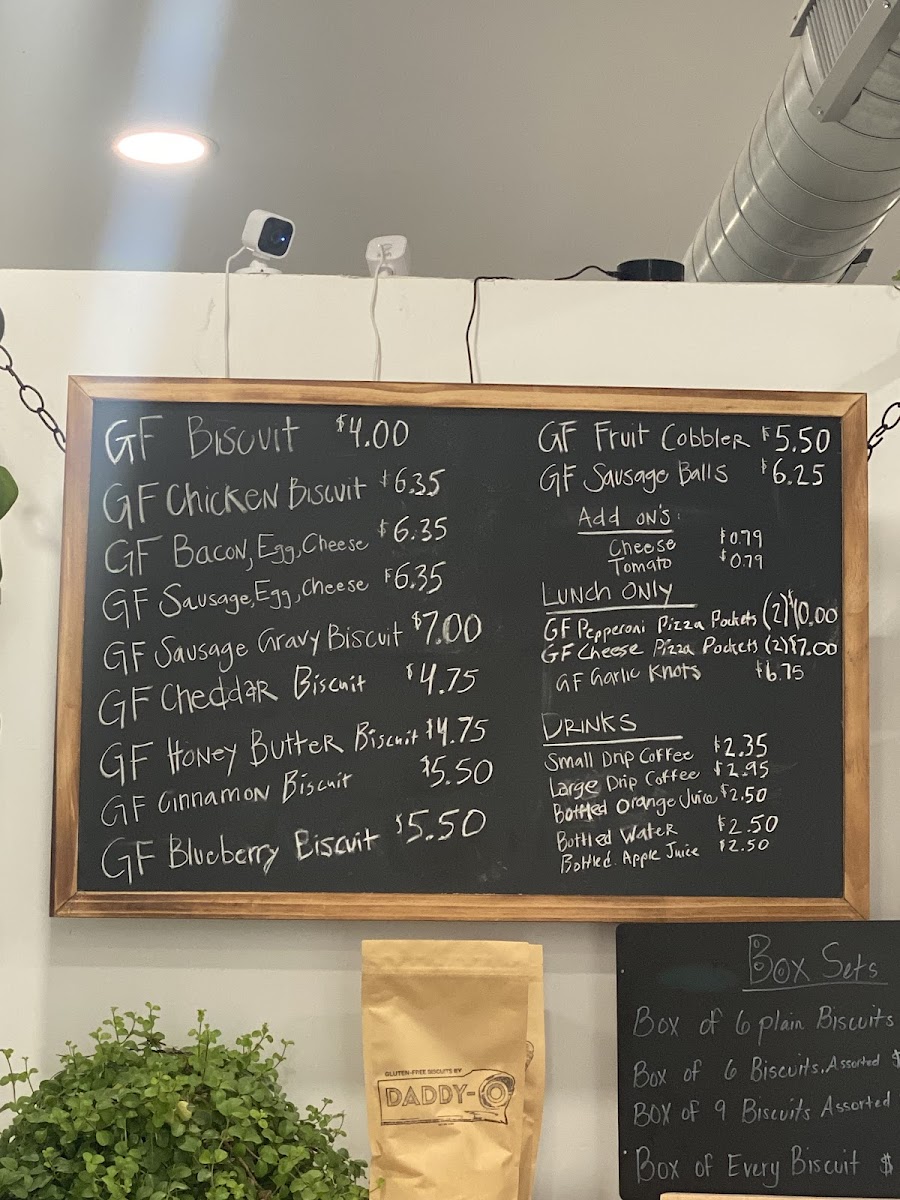 GF Biscuit $4.00
GF Chicken Biscuit $6.35
GF Bacon, Egg, Cheese $6.35
GF Sausage, Egg, Cheese $6.35
GF Sausage Gravy Biscuit $7.00
GF Cheddar Biscuit $4.75
GF Honey Butter Biscuit $4.75
GF Cinnamon Biscuit $5.50
GF Blueberry Biscuit $5.50
GF Fruit Cobbler $5.50
GF Sausage Balls $6.25
Add on's:
Cheese $0.79
Tomato $0.79
Lunch Only
GF Pepperoni Pizza Pockets (2) $10.00
GF Cheese Pizza Pockets (2) $7.00
GF Garlic Knots $6.75
Drinks
Small Drip Coffee $2.35
Large Drip Coffee $2.95
Bottled Orange Juice $2.50
Bottled Water $2.50
Bottled Apple Juice $2.50
GLUTEN-FREE BISCUITS BY
DADDY-O
Box Sets
Box of 6 plain Biscuits
Box of 6 Biscuits, Assorted $
Box of 9 Biscuits Assorted
Box of Every Biscuit $